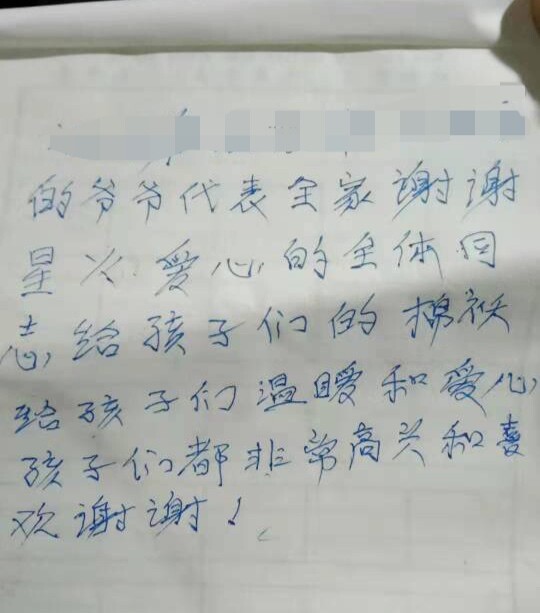 的爷爷代表全家谢谢
星火爱心的全体同
志给孩子们的棉袄
给孩子们温暖和爱心
孩子们都非常高兴和喜
欢谢谢！